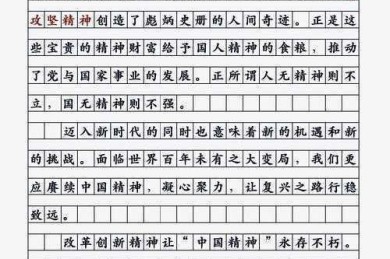 攻坚精神创造了彪炳史册的人间奇迹。正是这
些宝贵的精神财富给予国人精神的食粮，推动
了党与国家事业的发展。正所谓人无精神则不
立，国无精神则不强。
迈入新时代的同时也意味着新的机遇和新
的挑战。面临世界百年未有之大变局，我们更
应赓续中国精神，凝心聚力，让复兴之路行稳
致远。
改革创新精神让“中国精神”永存不朽。